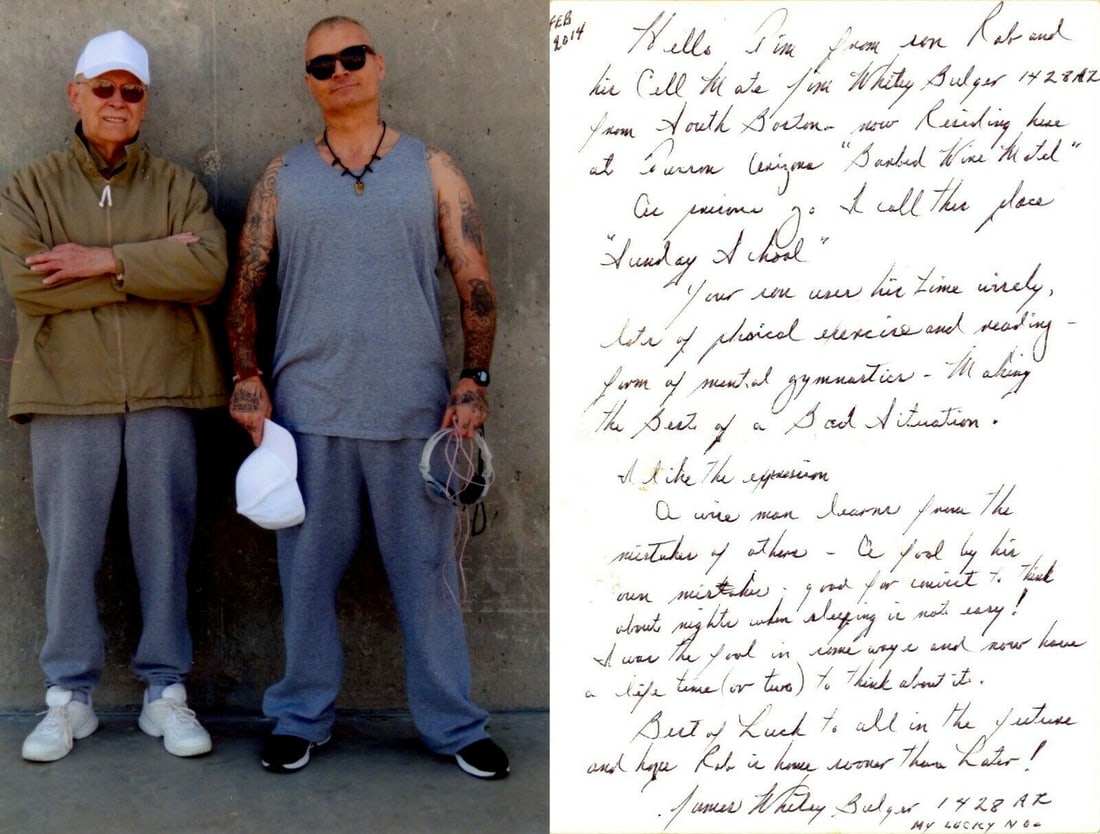 FEB
2014
Hello Tim from son Rob and
his Cell Mate Jim Whitey Bulger 1428AZ
from South Boston - now Residing here
at Tucson Arizona "Barbed Wire Motel"
As prisons go I call this place
"Sunday School"
Your son uses his time wisely,
lots of phsical exercise and reading -
form of mental gymnastics - Making
the Best of a Bad Situation.
I like the expression
A wise man learns from the
mistakes of others - A fool by his
own mistakes - good for convict to think
about nights when sleeping is not easy!
I was the fool in some ways and now have
a life time (or two) to think about it.
Best of Luck to all in the future
and hope Rob is home sooner than Later!
James Whitey Bulger 1428 AZ
MY LUCKY NO.